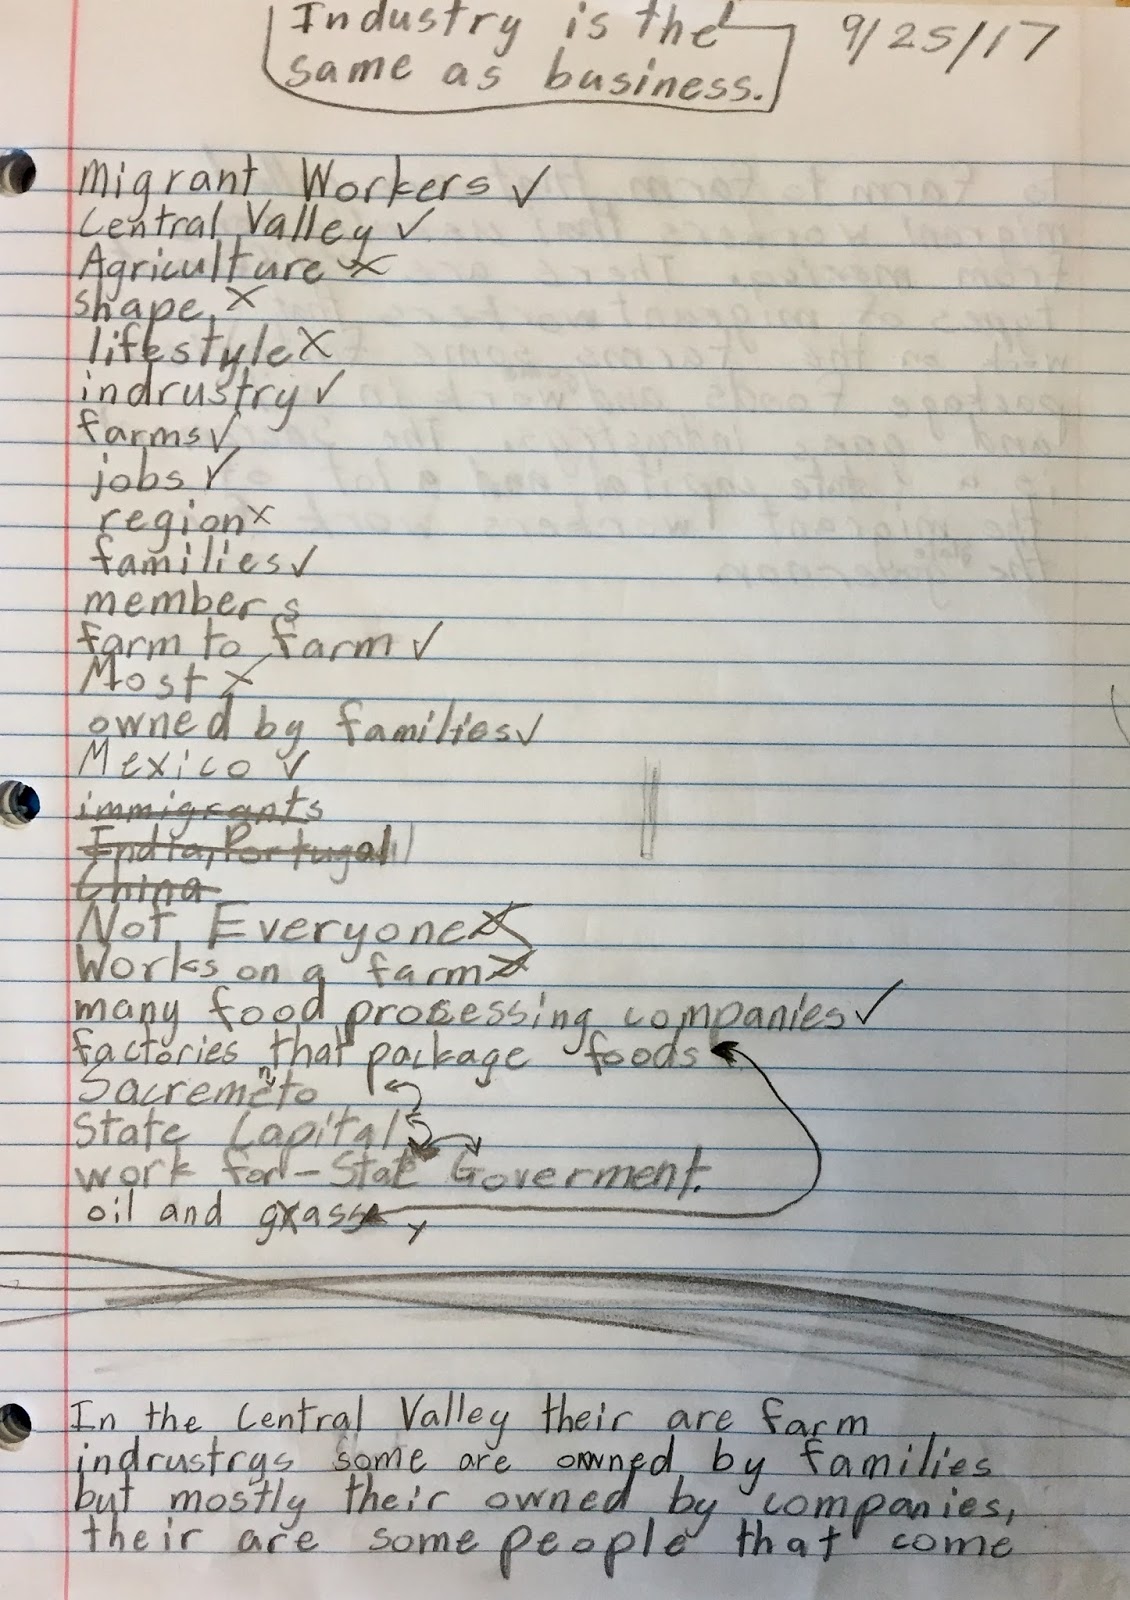 Industry is the
same as business.
9/25/17
Migrant Workers ✓
Central Valley ✓
Agriculture X
shape, X
lifestyle X
indrustry ✓
farms ✓
jobs ✓
region X
families ✓
members
farm to farm ✓
Most X
owned by families ✓
Mexico ✓
immigrants
India, Portugal
China
Not Everyone X
Works on a farm X
many food processing companies ✓
factories that package foods
Sacremento
State Capital
work for - State Goverment.
oil and gxass X
In the Central Valley their are farm
indrustrys some are owned by families
but mostly their owned by companies,
their are some people that come